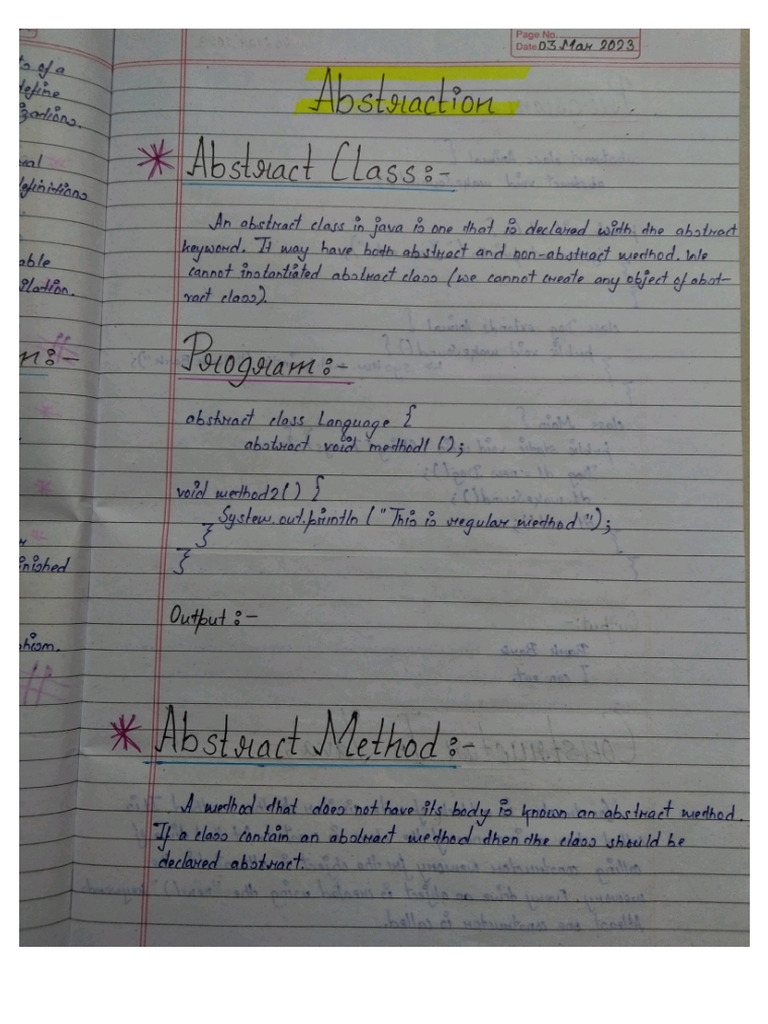 Page No.
Date 03 Mar 2023
Abstraction
* Abstract Class:-
An abstract class in java is one that is declared with the abstract
keyword. It may have both abstract and non-abstract method. We
cannot instantiated abstract class (we cannot create any object of abst-
ract class).
Program:-
abstract class Language {
abstract void method1 ();
void method2() {
System.out.println ("This is regular method");
}
}
Output:-
* Abstract Method:-
A method that does not have its body is known an abstract method.
If a class contain an abstract method then the class should be
declared abstract.